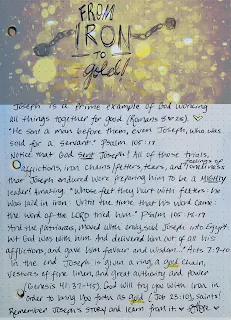 FROM
IRON
TO
gold!
Joseph is a prime example of God working
all things together for good (Romans 8:28).
"He sent a man before them, even Joseph, who was
sold for a servant." Psalm 105:17
Notice that God sent Joseph! All of those trials,
afflictions, iron chains/fetters, tears, and feelings of loneliness
that Joseph endured were preparing him to be a mighty
leader! Amazing. "Whose feet they hurt with fetters: he
was laid in iron: Until the time that his word came:
the word of the LORD tried him." Psalm 105:18-19
"And the patriarchs, moved with envy, sold Joseph into Egypt:
but God was with him, And delivered him out of all his
afflictions, and gave him favour and wisdom..." Acts 7:9-10
In the end Joseph is given a ring, a gold chain,
vestures of fine linen, and great authority and power
(Genesis 41:37-45). God will try you with iron in
order to bring you forth as gold (Job 23:10), saints!
Remember Joseph's story and learn from it